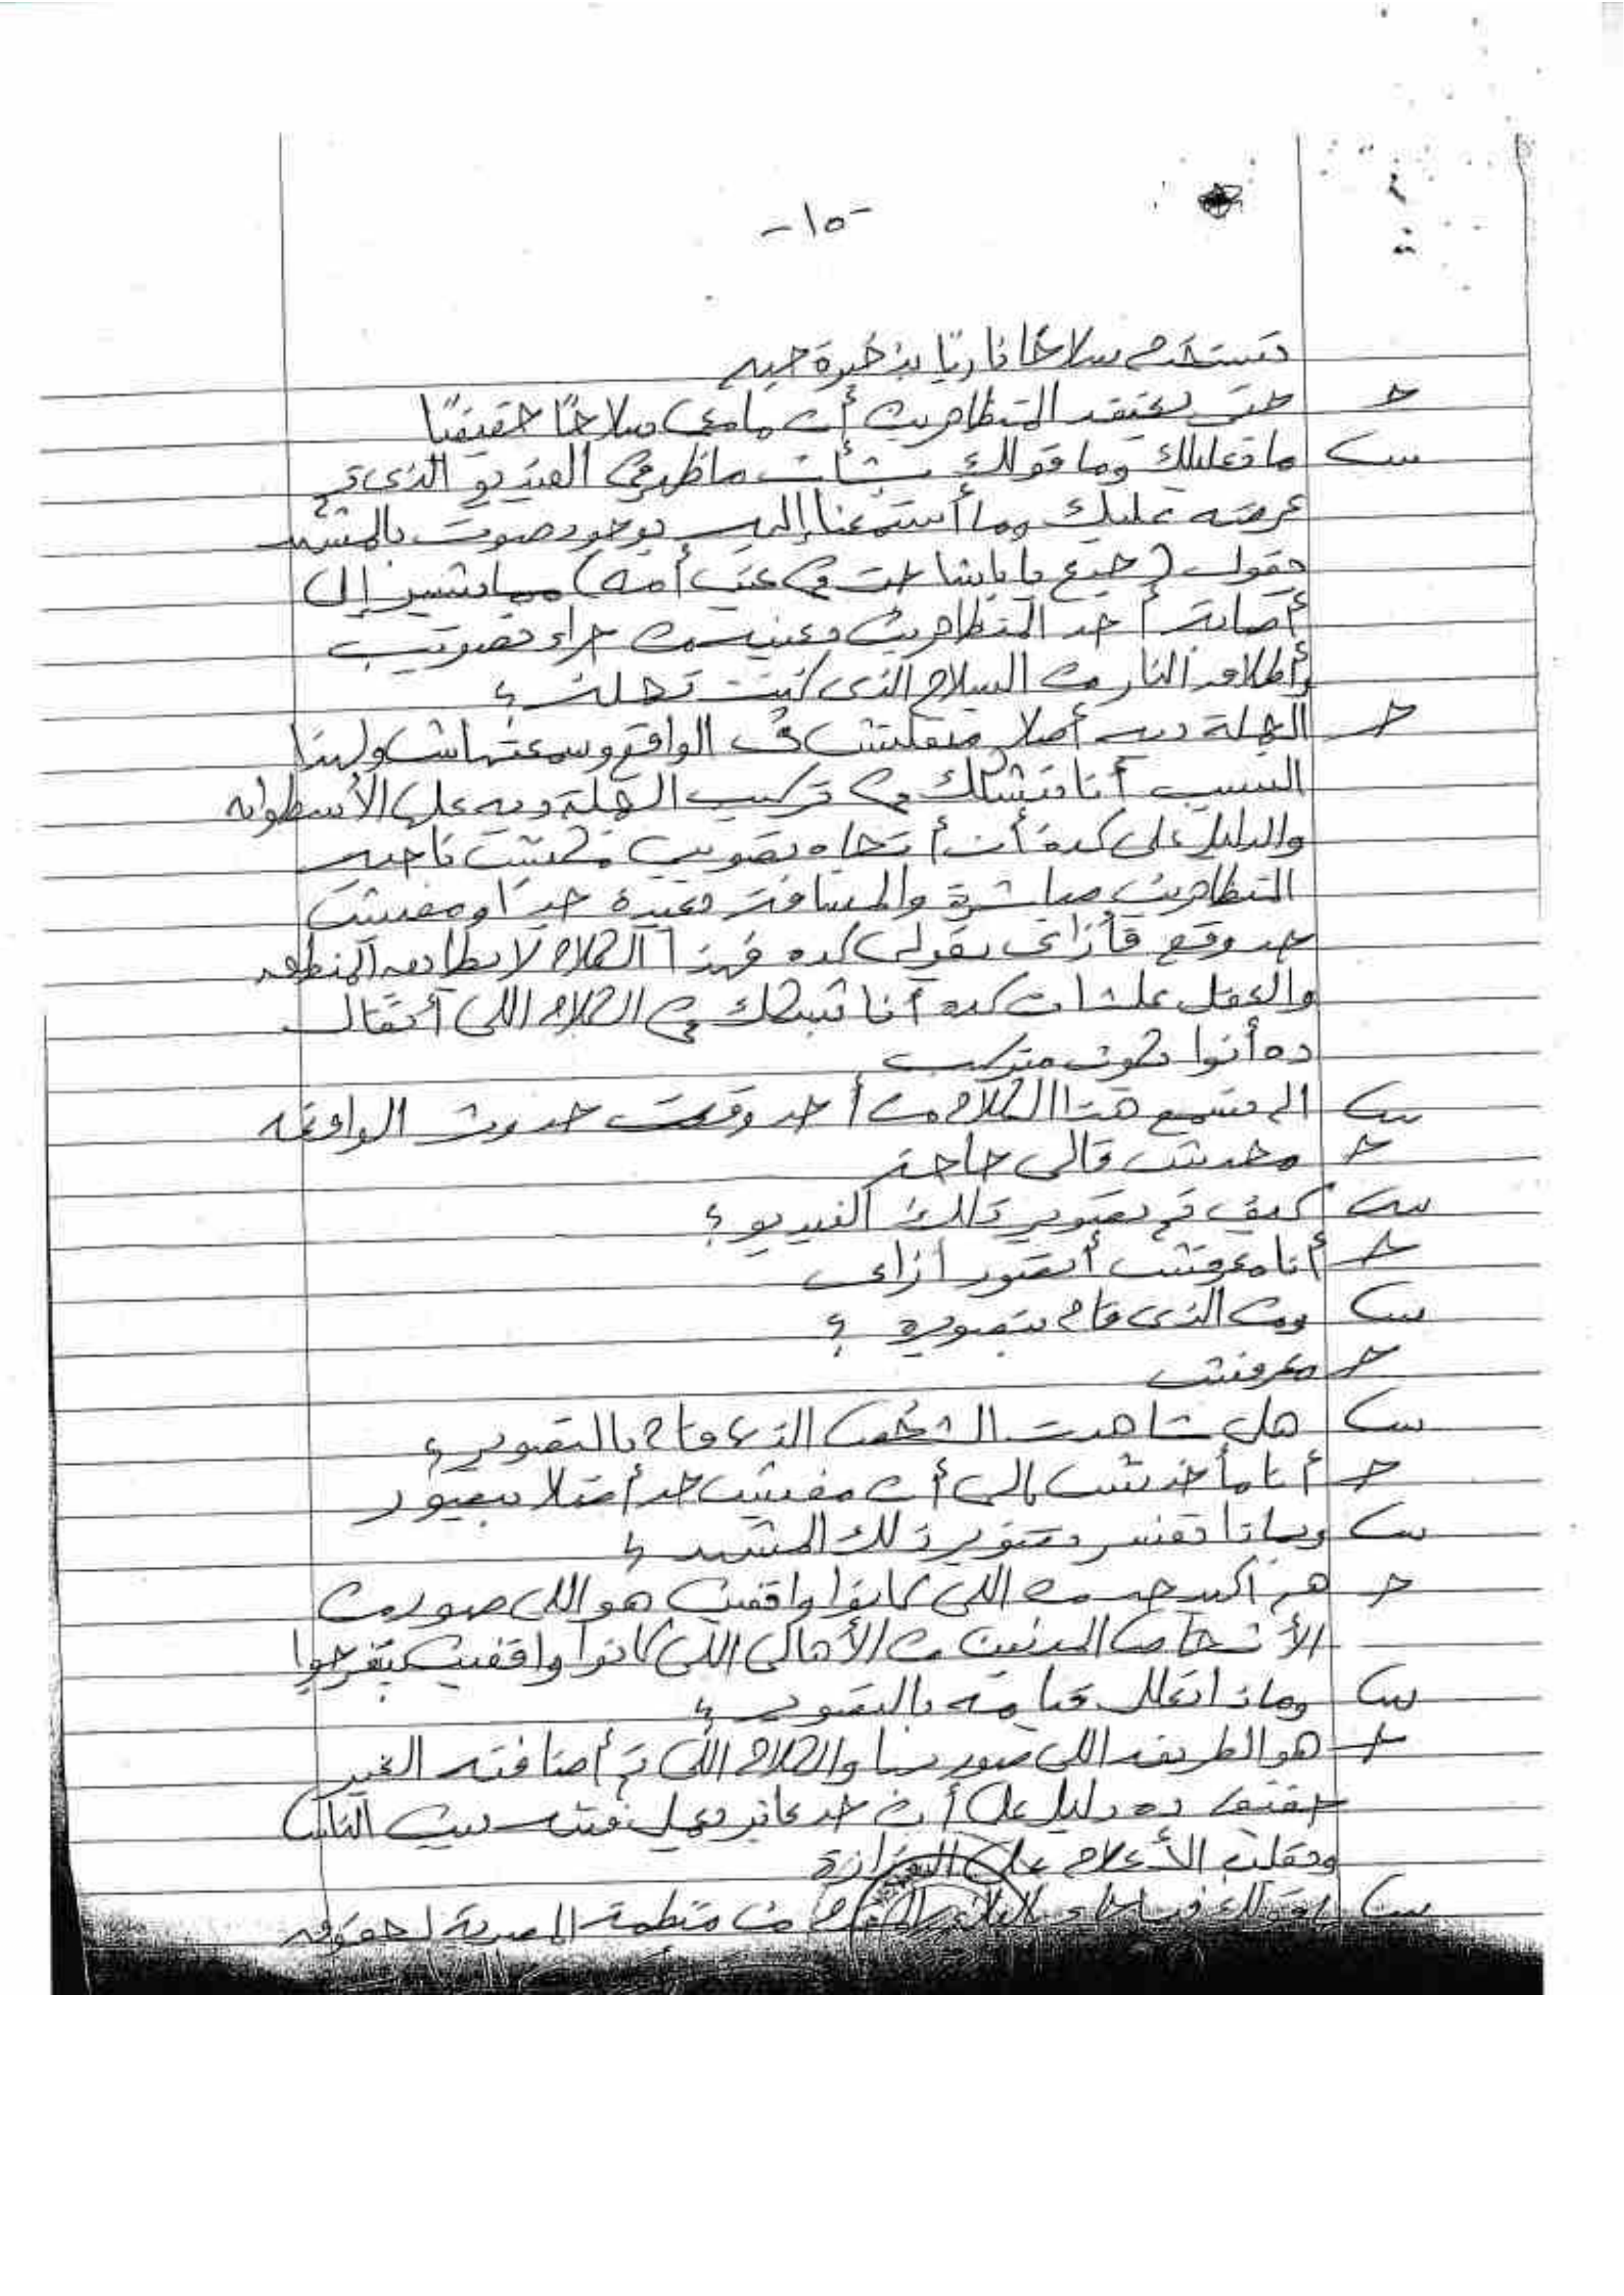 -١٥-
تستخدم سلاحًا ناريًا بذخيرة حيه
ج حتى يعتقد المتظاهرين أن مامعى سلاحًا حقيقيًا
س ما تعليلك وما قولك بشأن ما ظهر فى الفيديو الذى تم
عرضه عليك وما أستمعنا إليه بوجود صوت بالمشهد
يقول (جدع يا باشا جت فى عين أمه) مما يشير إلى
أصابة أحد المتظاهرين بعينيه من جراء تصويب
وأطلاق النار من السلاح الذى كنت تحمله ؟
ج الجملة ديه أصلا متقلتش فى الواقع وسمعتهاش ولهذا
السبب أنا بتشكك فى تركيب الجملة ديه على الأسطوانه
والدليل على كده أن أتجاه تصويبى مكنش ناحيه
المتظاهرين مباشرة والمسافة بعيدة جدًا ومفيش
حد وقع فأزاى يقولى كده فهذا الكلام لا يطابق المنطق
والعقل علشان كده أنا بشكك فى الكلام اللى أتقال
ده أنوا يكون متركب
س الم تسمع هذا الكلام من أحد وقت حدوث الواقعه
ج محدش قالى حاجة
س كيف تم تصوير ذلك الفيديو ؟
ج أنا معرفش أتصور أزاى
س ومن الذى قام بتصويره ؟
ج معرفش
س هل شاهدت الشخص الذى قام بالتصوير ؟
ج أنا مأخدتش بالى أن مفيش حد أصلا بيصور
س وبماذا تفسر تصوير ذلك المشهد ؟
ج هو أكيد حد من اللى كانوا واقفين هو اللى صور من
الأشخاص المدنين من الأهالى اللى كانوا واقفين بيتفرجوا
س وماذا تعلل قيامه بالتصوير ؟
ج هو الطريقه اللى صور بيها والكلام اللى تم أضافته الغير
حقيقى ده دليل على أن حد عايز يعمل فتنه بين الناس
ويقلب الأعلام على الوزارة
س ما قولك فيما جاء بالبلاغ المقدم من منظمة المصرية لحقوق